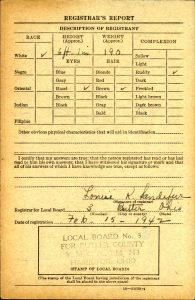 REGISTRAR'S REPORT
DESCRIPTION OF REGISTRANT
RACE HEIGHT (Approx.) WEIGHT (Approx.) COMPLEXION
White ✓ 190 Sallow
EYES HAIR Light
Negro Blue Blonde Ruddy ✓
Gray Red Dark
Oriental Hazel ✓ Brown ✓ Freckled
Brown Black Light brown
Indian Black Gray Dark brown
Bald Black
Filipino
Other obvious physical characteristics that will aid in identification
I certify that my answers are true; that the person registered has read or has had
read to him his own answers; that I have witnessed his signature or mark and that
all of his answers of which I have knowledge are true, except as follows:
Louise K.
(Signature of registrar)
Registrar for Local Board 3 Butler Ohio
(Number) (City or county) (State)
Date of registration Feb. 15 - 1942
LOCAL BOARD No. 3
FOR BUTLER COUNTY
HAMILTON, OHIO
(STAMP OF LOCAL BOARD)
(The stamp of the Local Board having jurisdiction of the registrant
shall be placed in the above space.)